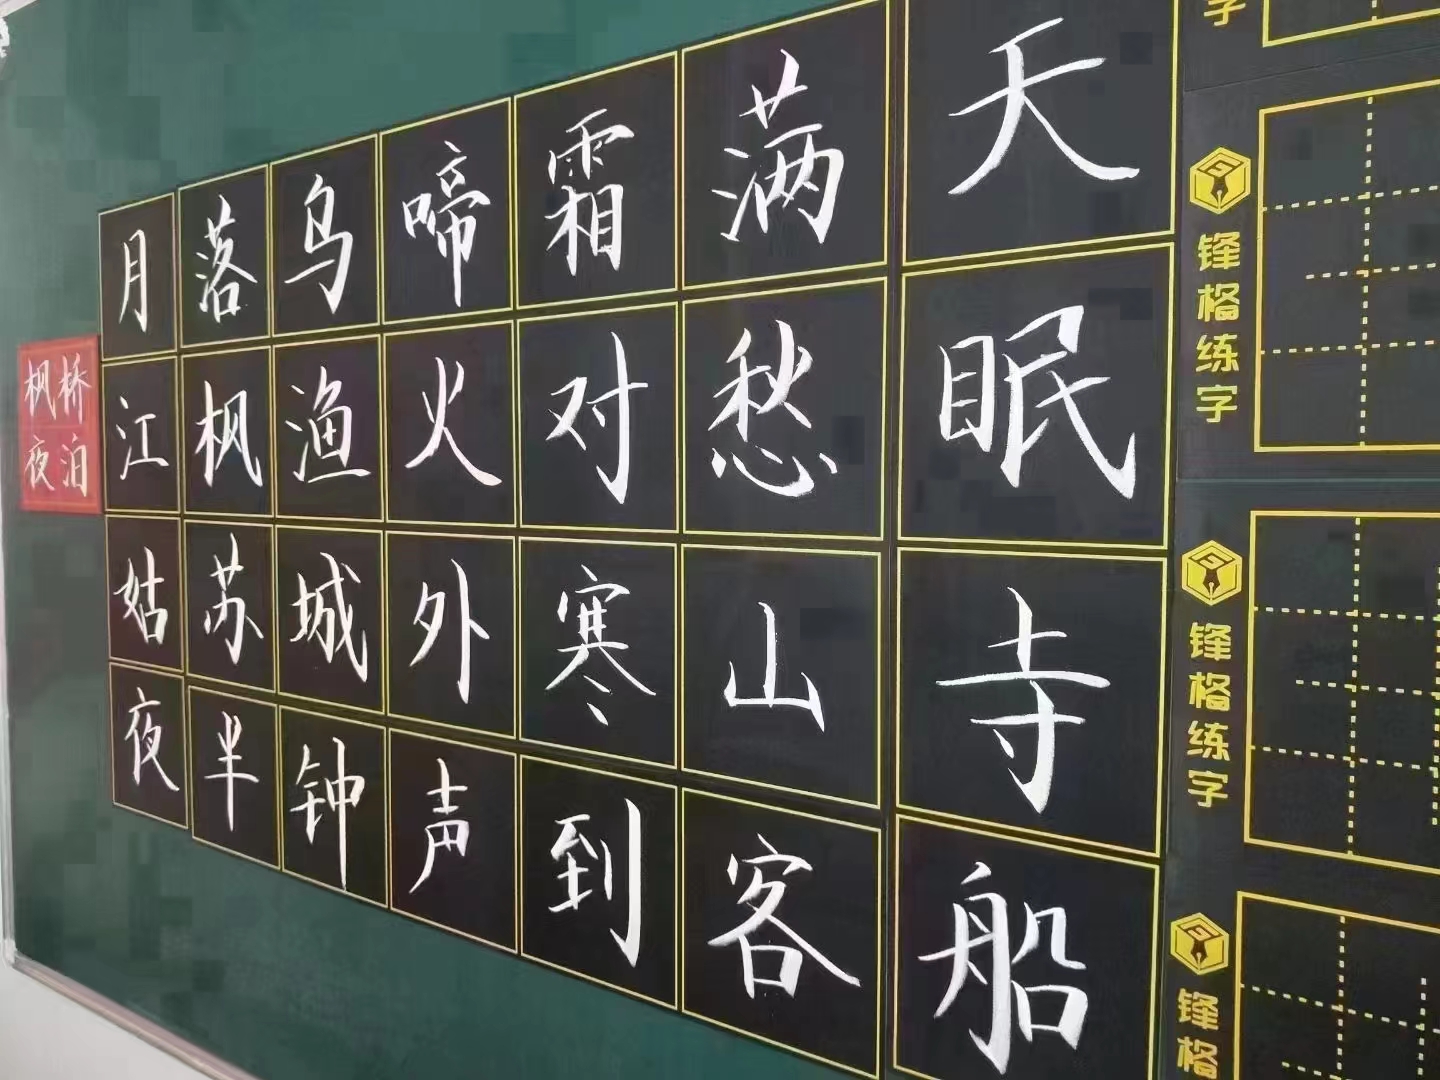 枫桥
夜泊
月落乌啼霜满天
江枫渔火对愁眠
姑苏城外寒山寺
夜半钟声到客船
字
锋格练字
锋格练字
锋格